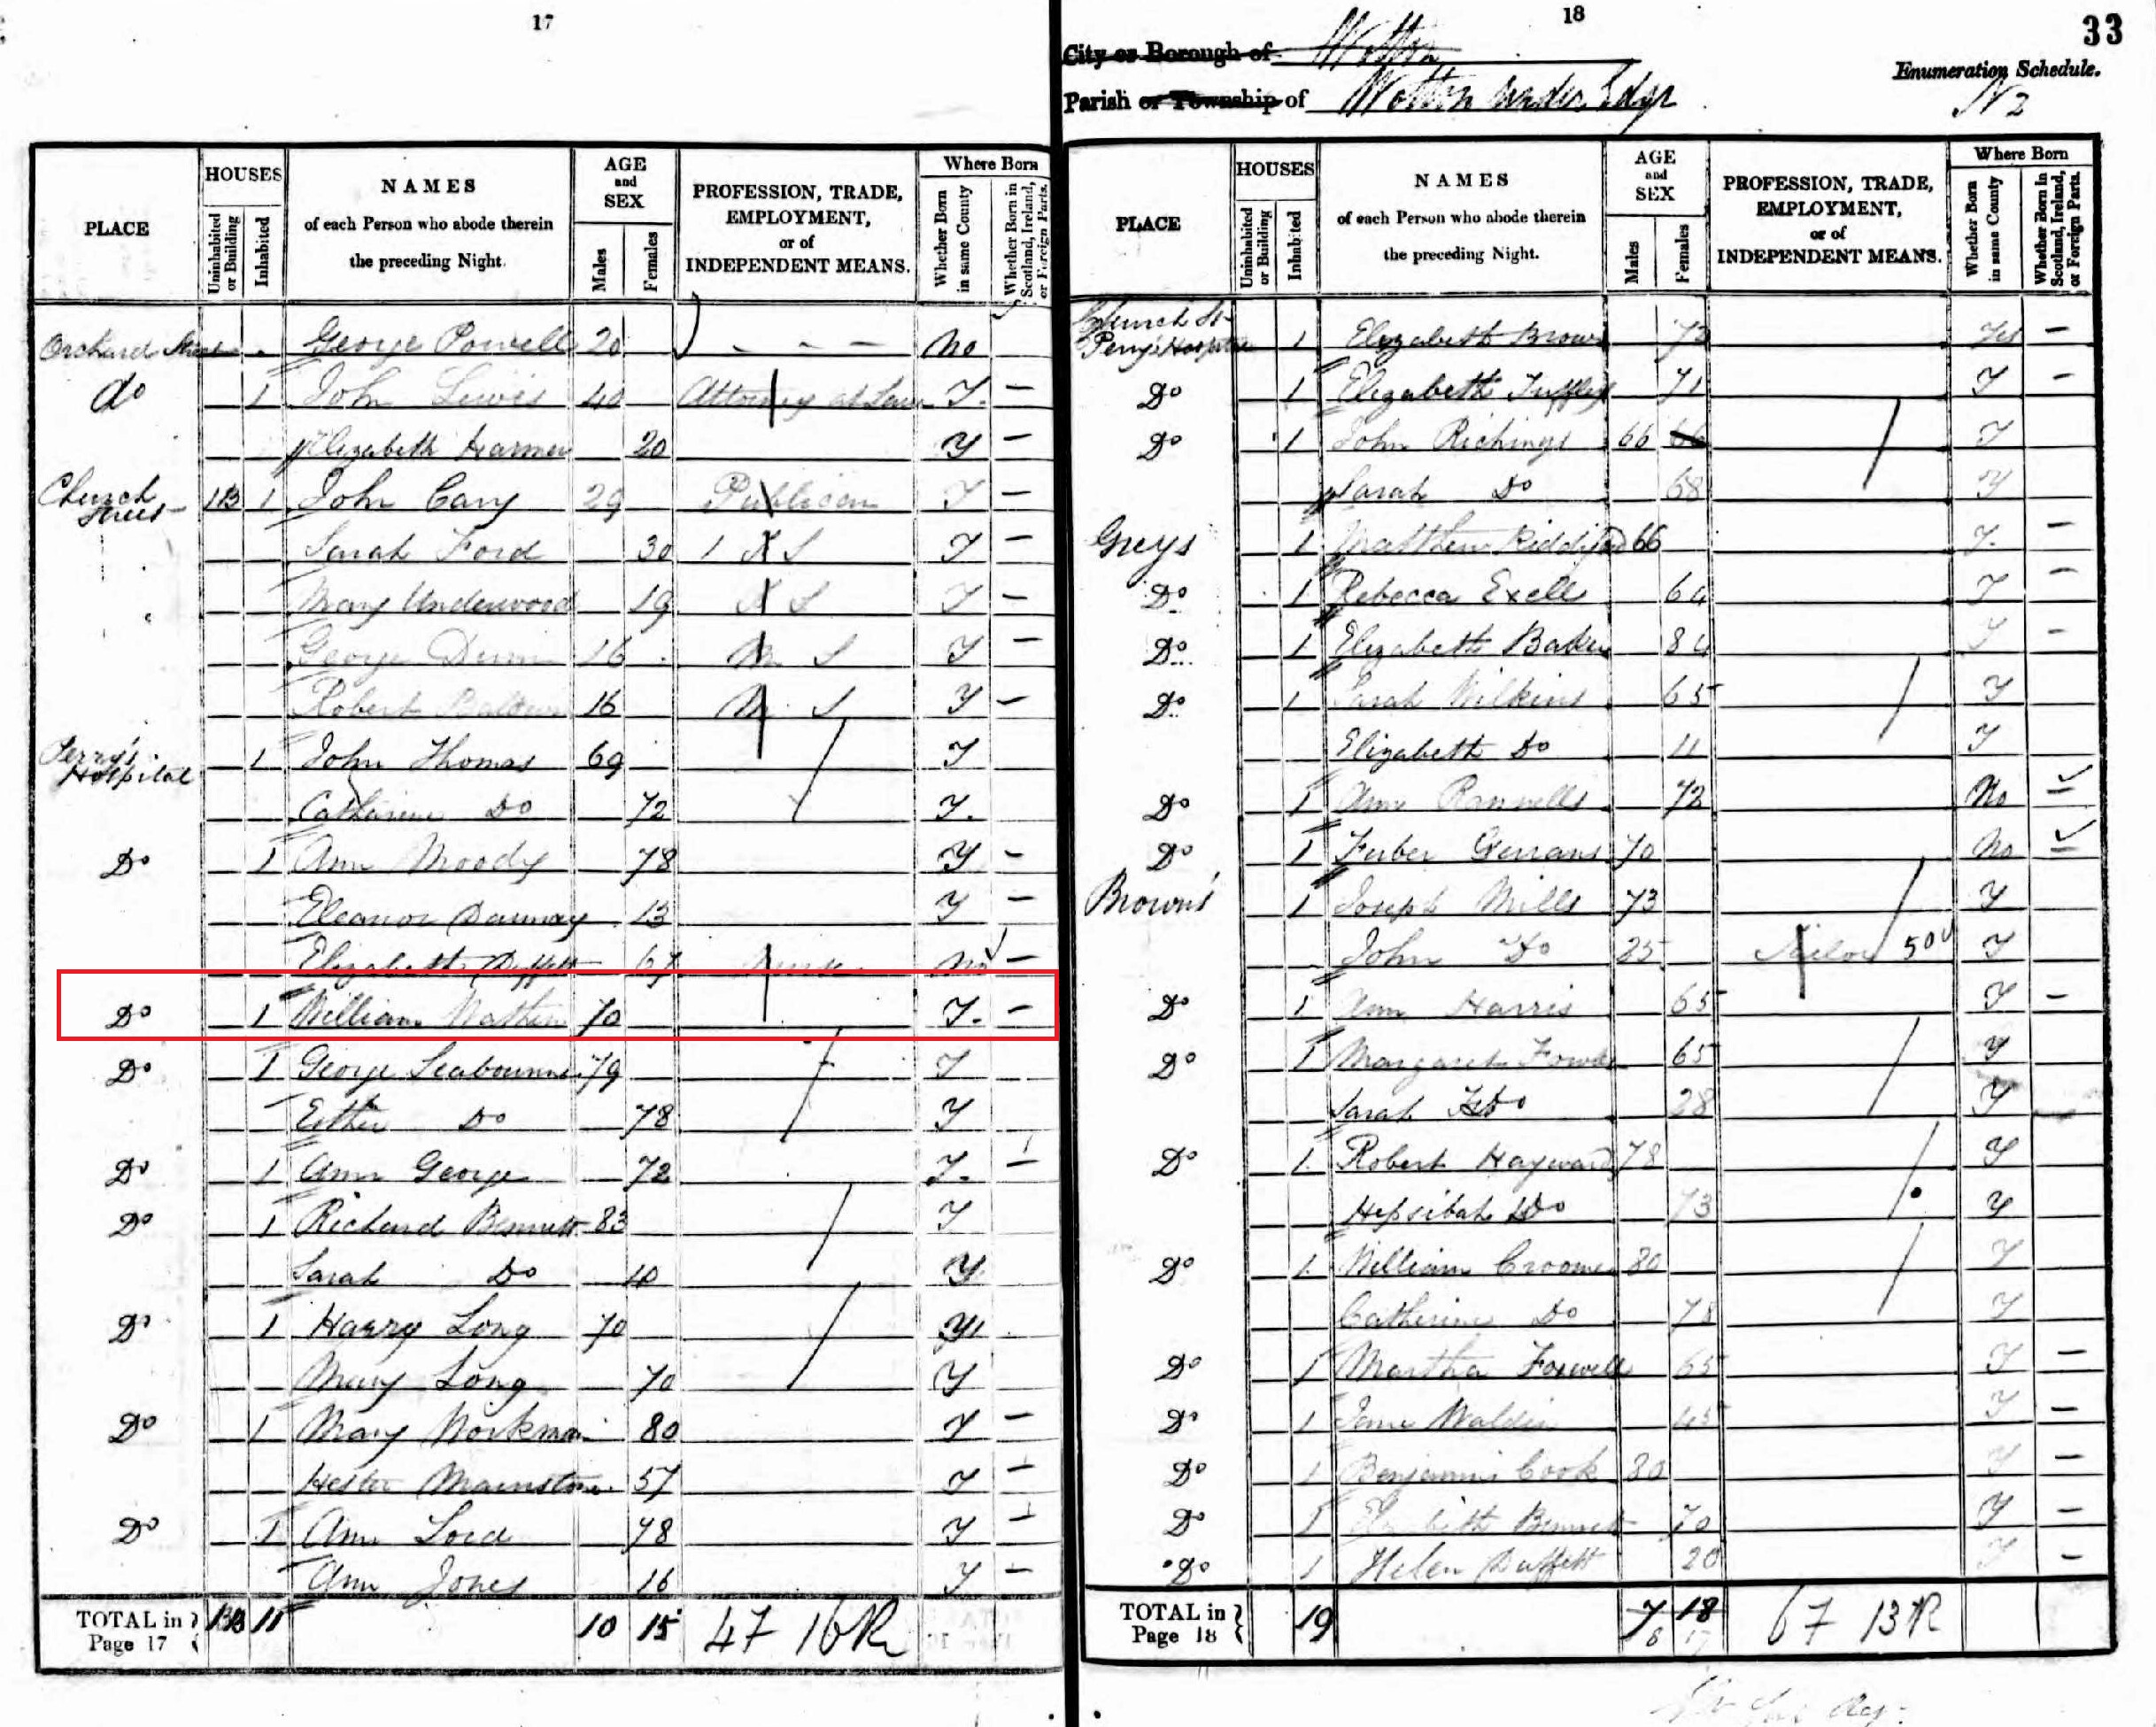 17
PLACE
HOUSES
Uninhabited or Building
Inhabited
NAMES
of each Person who abode therein
the preceding Night.
AGE
and
SEX
Males
Females
PROFESSION, TRADE,
EMPLOYMENT,
or of
INDEPENDENT MEANS.
Where Born
Whether Born in same County
Whether Born in Scotland, Ireland, or Foreign Parts.
Orchard Street George Powell 20 - - - No
do 1 John Lewis 40 Attorney at Law Y. -
Elizabeth Harmer 20 Y -
Church Street 1B 1 John Cary 29 Publican Y -
Sarah Ford 30 F S Y -
Mary Underwood 19 F S Y -
George Dunn 16 M S Y -
Robert Baldwin 16 M S Y -
Perry's Hospital 1 John Thomas 69 Y
Catherine Do 72 Y.
Do 1 Ann Moody 78 Y -
Eleanor 13 Y -
Elizabeth Duffett No -
Do 1 William 70 Y. -
Do 1 George Seabourne 79 Y
Esther Do 78 Y
Do 1 Ann George 72 Y. -
Do 1 Richard Bennett 83 Y
Sarah Do 10 Y
Do 1 Harry Long 70 Y
Mary Long 70 Y
Do 1 Mary Workman 80 Y -
Hester Mainstone 57 Y -
Do 1 Ann Lord 78 Y -
Ann Jones 16 Y -
TOTAL in Page 17 11 10 15 47 16R
18
33
City or Borough of Wotton
Enumeration Schedule.
Parish or Township of Wotton under Edge
N 2
PLACE
HOUSES
Uninhabited or Building
Inhabited
NAMES
of each Person who abode therein
the preceding Night.
AGE
and
SEX
Males
Females
PROFESSION, TRADE,
EMPLOYMENT,
or of
INDEPENDENT MEANS.
Where Born
Whether Born in same County
Whether Born in Scotland, Ireland, or Foreign Parts.
Church St
Perry's Hospital 1 Elizabeth Brown 73 Yes -
Do 1 Elizabeth Tuffley 71 Y -
Do 1 John Richings 66 Y
Sarah Do 68 Y
Greys 1 Matthew Riddiford 66 Y. -
Do 1 Rebecca Exell 64 Y -
Do 1 Elizabeth Baker 84 Y -
Do 1 Sarah Wilkins 65 Y
Elizabeth Do 11 Y
Do 1 Ann Rannells 72 No -
Do 1 70 No -
Browns 1 Joseph Mills 73 Y
John Do 25 Tailor 50 Y
Do 1 Ann Harris 65 Y -
Do 1 Margaret 65 Y
Sarah Do 28 Y
Do 1 Robert Hayward 78 Y
Hepsibah Do 73 Y
Do 1 William Croome 80 Y
Catherine Do 78 Y
Do 1 Martha Foxwell 65 Y -
Do 1 Jane Y -
Do 1 Benjamin Cook 80 Y -
Do 1 Elizabeth Bennett 70 Y -
Do 1 Helen Duffett 20 Y -
TOTAL in Page 18 19 7 18 67 13R
8 17